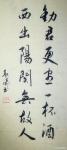 勸君更盡一杯酒
西出陽關無故人